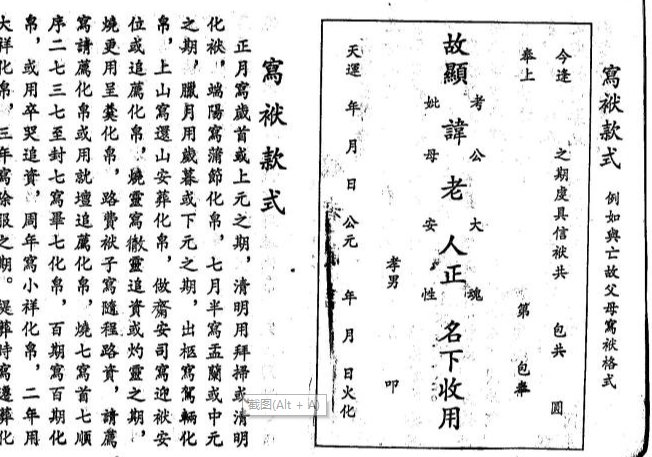 寫袱款式 例如與亡故父母寫袱格式
今逢 之期虔具信袱共 包共 圓
奉上 第 包奉
考公大魂
故顯 諱老人正 名下收用
妣母安性
孝男 叩
天運 年 月 日 公元 年 月 日火化
寫袱款式
正月寫歲首或上元之期，清明用拜掃或清明
化袱，端陽寫蒲節化帛，七月半寫盂蘭或中元
之期，臘月用歲暮或下元之期，出柩寫駕輛化
帛，上山寫還山安葬化帛，做齋安司寫迎袱安
位或追薦化帛，燒靈寫徹靈追資或灼靈之期，
燒更用呈奠化帛，路費袱子寫隨程路資，請薦
寫請薦化帛或用就壇追薦化帛，燒七寫首七順
序二七三七至封七寫畢七化帛，百期寫百期化
帛，或用卒哭追資，周年寫小祥化帛，二年用
大祥化帛，三年寫除服之期。提葬時寫遷葬化
截图(Alt + A)